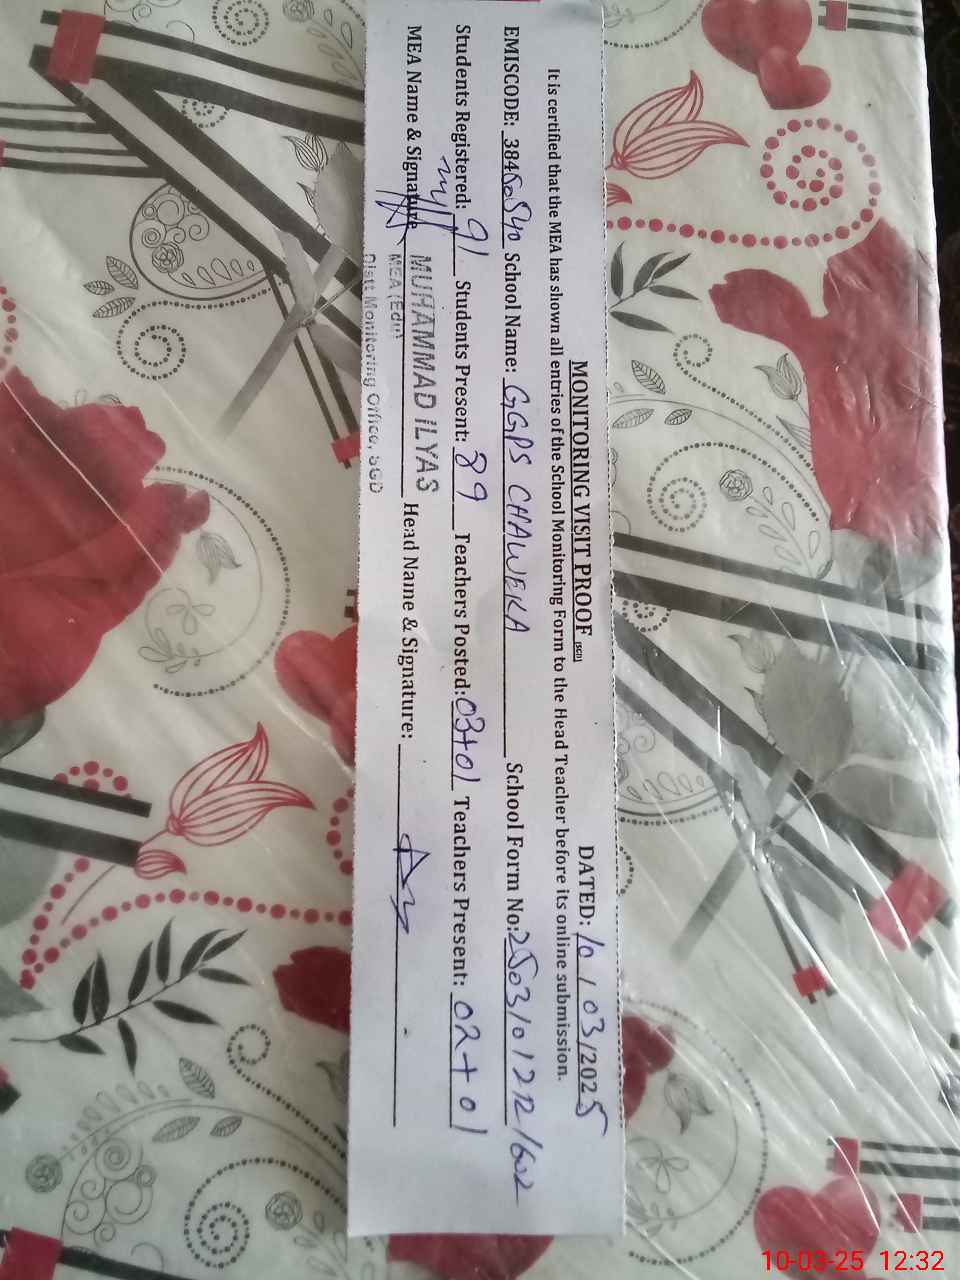 MONITORING VISIT PROOF (SGD) DATED: 10 / 03/2025
It is certified that the MEA has shown all entries of the School Monitoring Form to the Head Teacher before its online submission.
EMISCODE: 384 School Name: GGPS CHAWEKA School Form No:
Students Registered: 91 Students Present: 89 Teachers Posted: 03+01 Teachers Present: 02+01
MEA Name & Signature MUHAMMAD ILYAS Head Name & Signature:
MEA (Edu)
Distt Monitoring Office, SGD
10-03-25 12:32